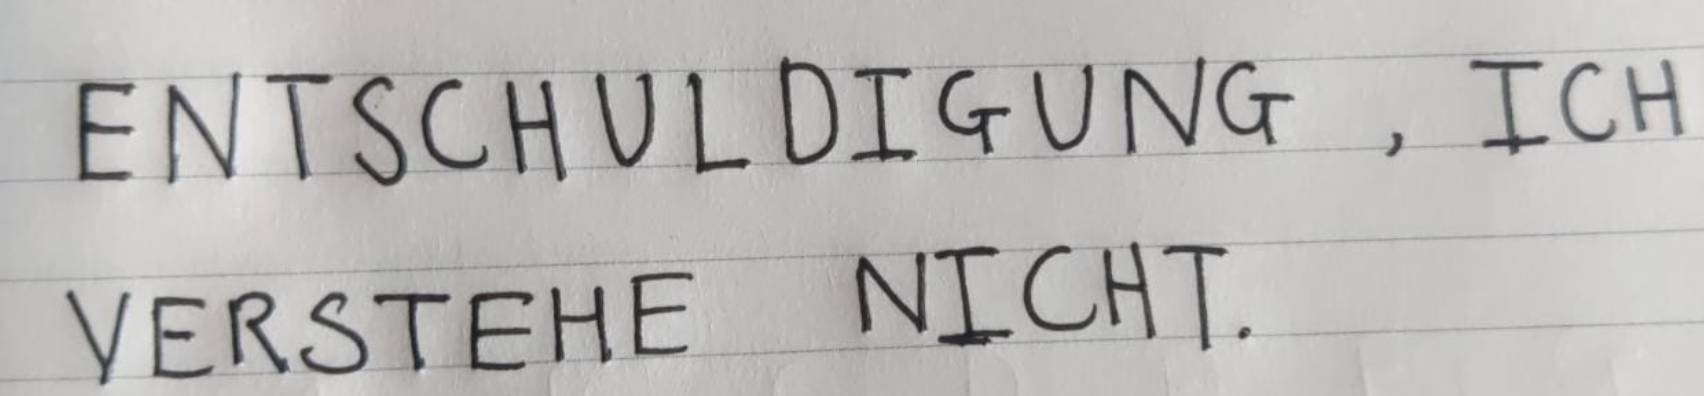 ENTSCHULDIGUNG, ICH
VERSTEHE NICHT.